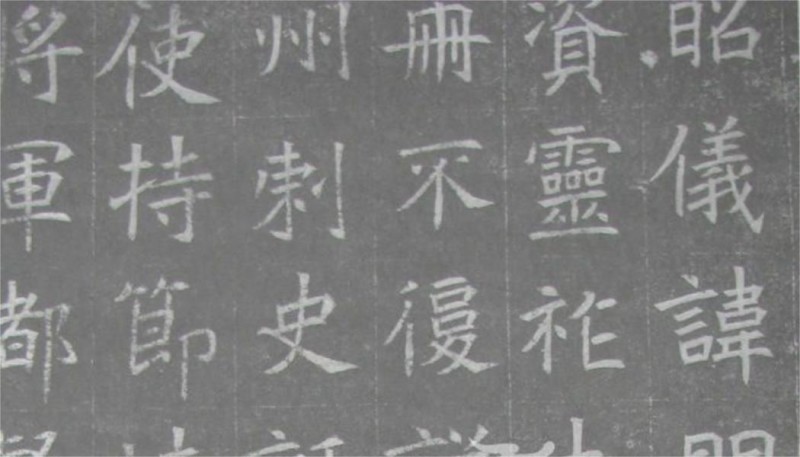 昭儀諱
資靈祚
冊不復
州刺史
使持節
将軍都